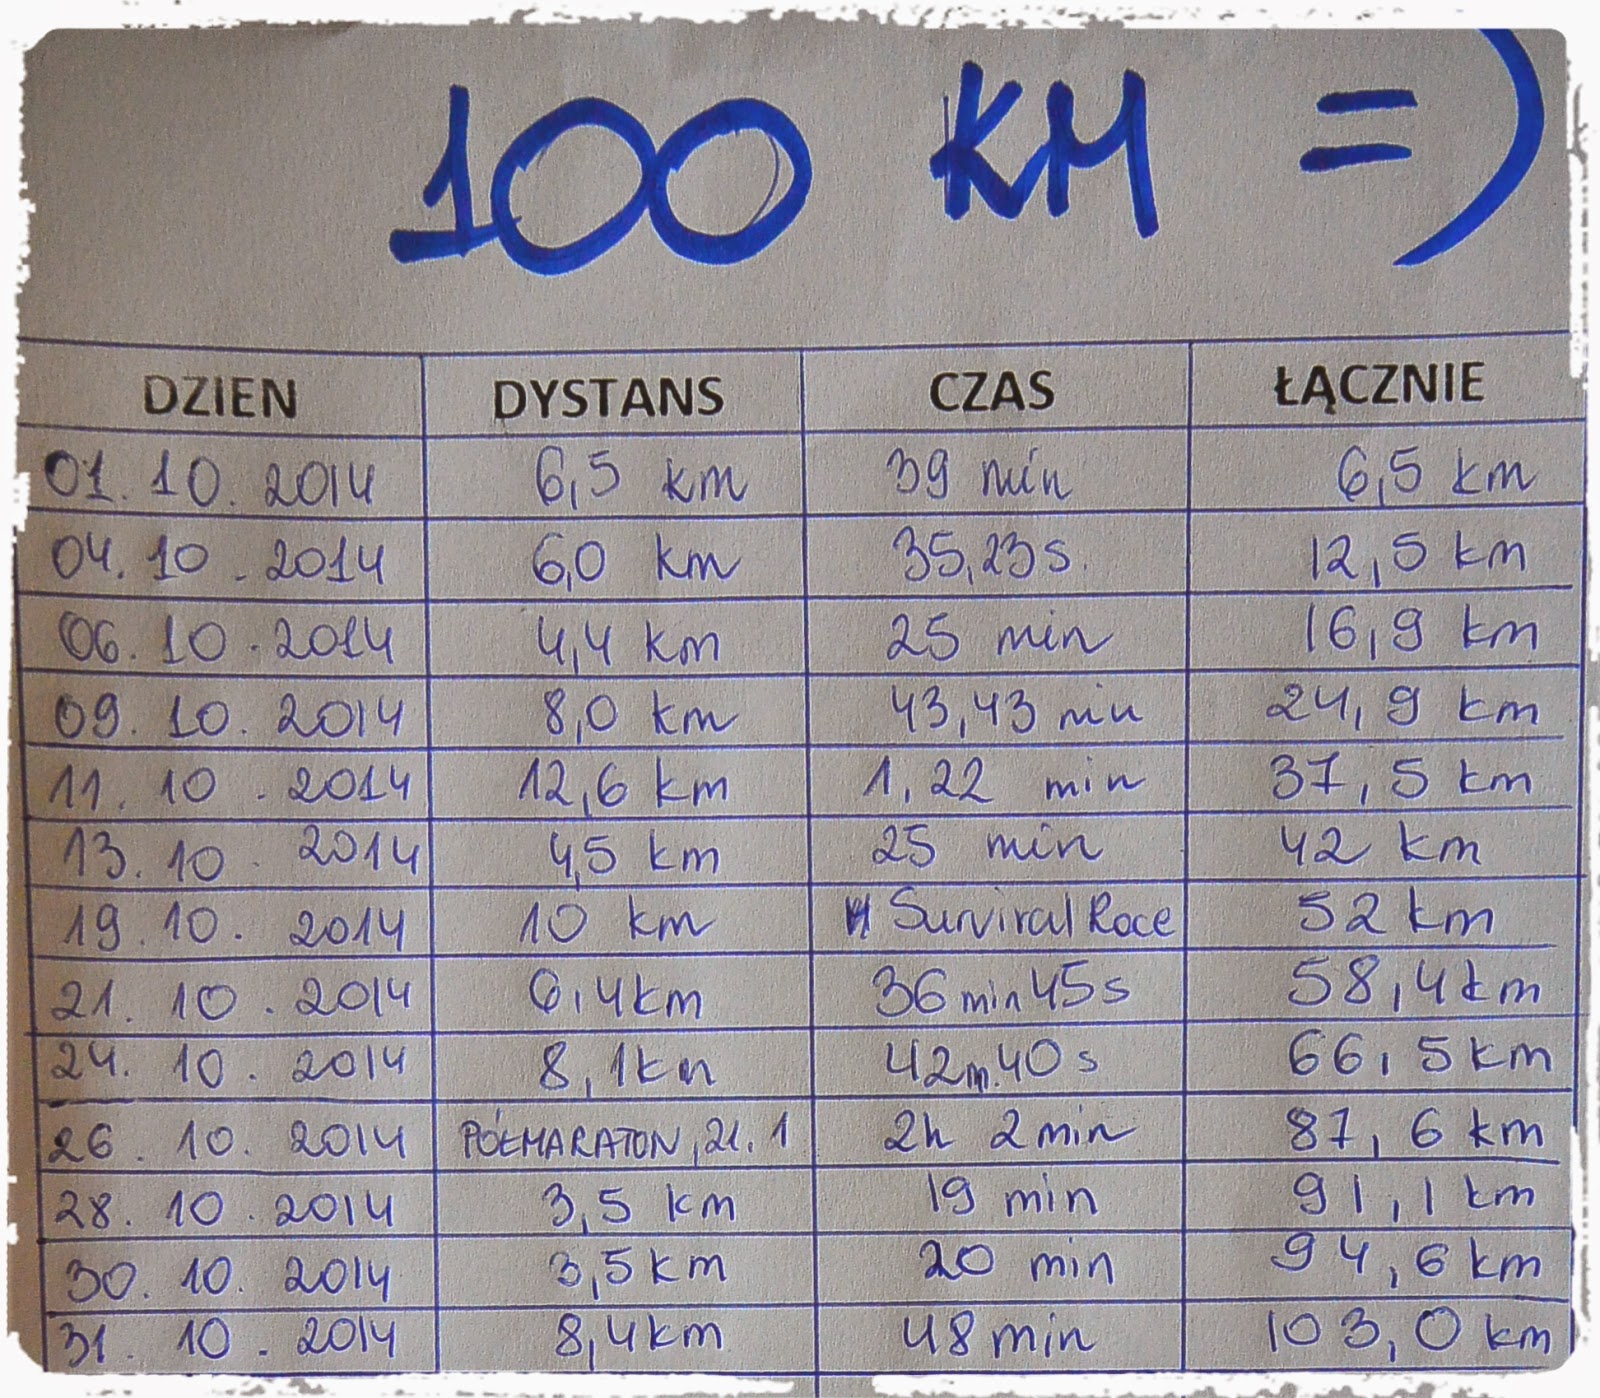 100 KM =)
DZIEŃ DYSTANS CZAS ŁĄCZNIE
01.10.2014 6,5 km 39 min 6,5 km
04.10.2014 6,0 km 35,23s. 12,5 km
06.10.2014 4,4 km 25 min 16,9 km
09.10.2014 8,0 km 43,43 min 24,9 km
11.10.2014 12,6 km 1,22 min 37,5 km
13.10.2014 4,5 km 25 min 42 km
19.10.2014 10 km Survival Race 52 km
21.10.2014 6,4km 36min45s 58,4km
24.10.2014 8,1km 42m.40s 66,5km
26.10.2014 PÓŁMARATON,21.1 2h 2min 87,6 km
28.10.2014 3,5 km 19 min 91,1 km
30.10.2014 3,5km 20 min 94,6 km
31.10.2014 8,4km 48min 103,0 km